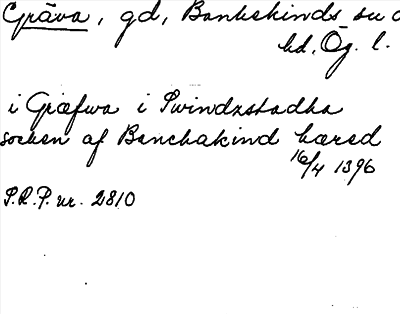 Gräva, gd, Bankekinds su o
hd, Ög. l.
i Græfwa i Swindzstadha
socken af Banchakind hæred
16/4 1396
S.R.P. nr. 2810